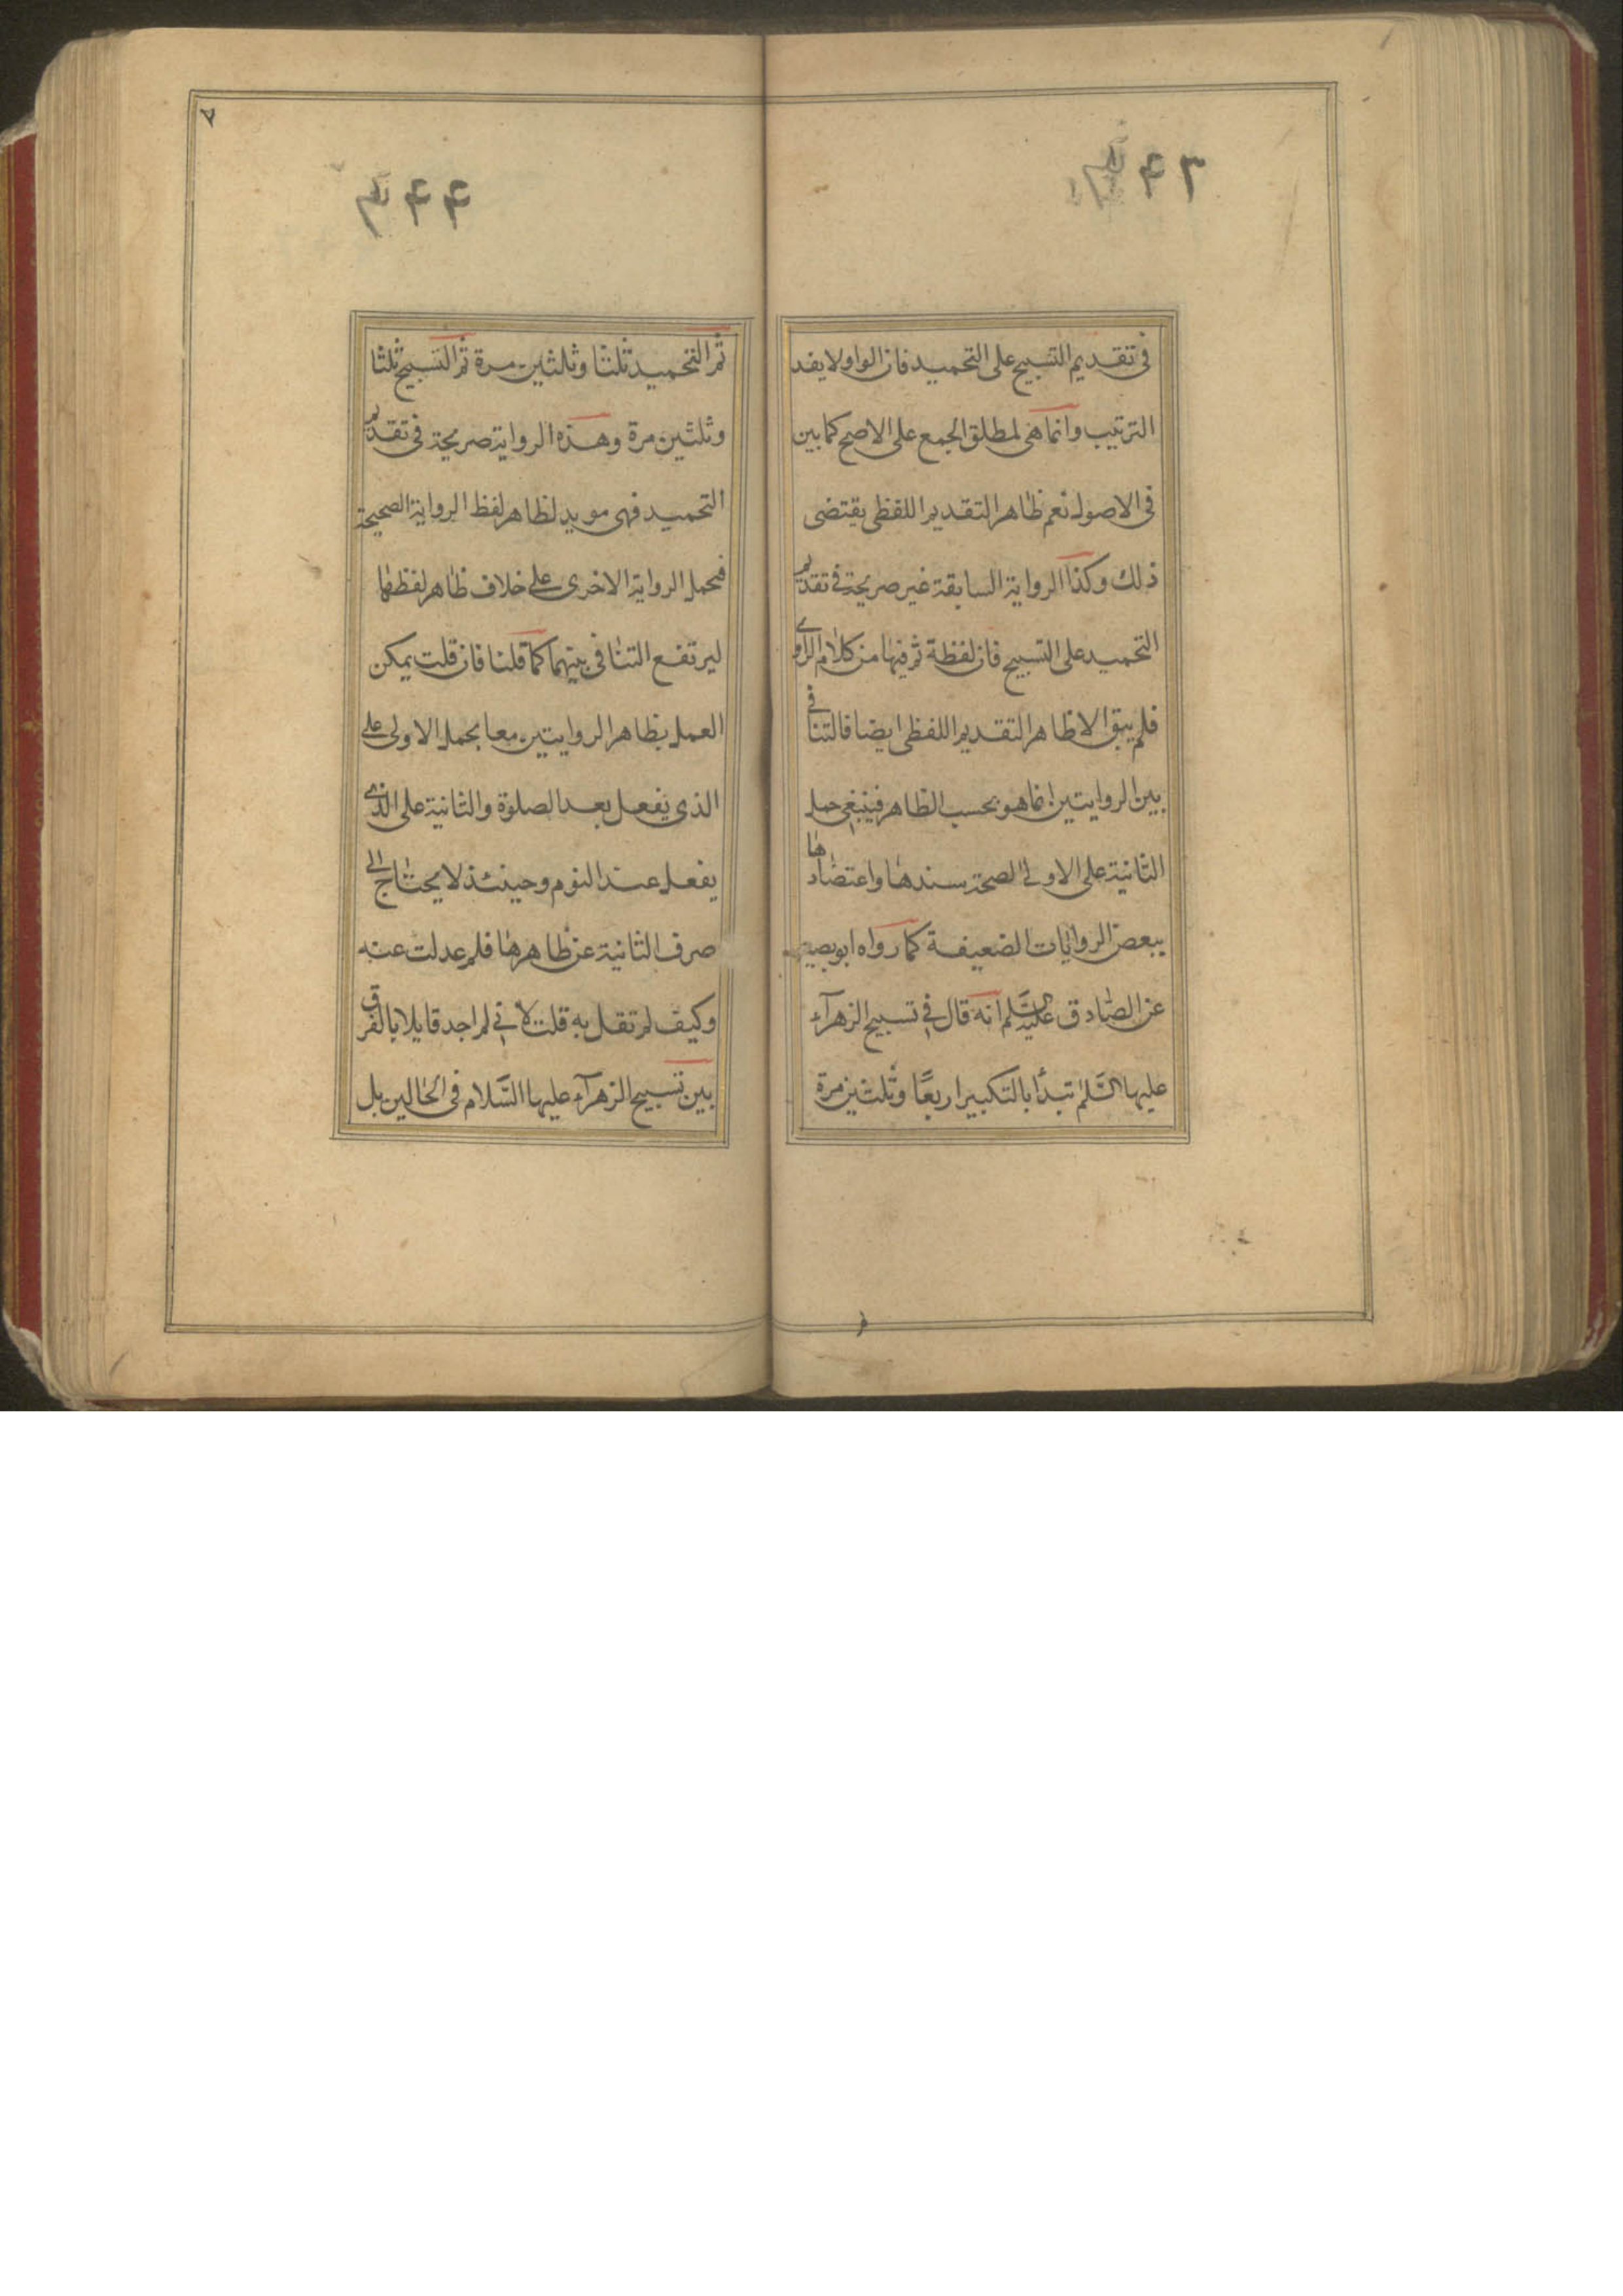 ۴۳
في تقديم التسبيح على التحميد فان الواو لا يفد
الترتيب وانما هي لمطلق الجمع على الاصح كما بين
في الاصول نعم ظاهر التقديم اللفظي يقتضى
ذلك وكذا الرواية السابقة غير صريحة في تقديم
التحميد على التسبيح فان لفظة ثم فيها من كلام الراوي
فلم يبق الا ظاهر التقديم اللفظي ايضا فالتنافي
بين الروايتين انما هو بحسب الظاهر فينبغي حمل
الثانية على الاولى لصحة سندها واعتضادها
ببعض الروايات الضعيفة كما رواه ابو بصير
عن الصادق عليه السلم انه قال في تسبيح الزهرآء
عليها السلم تبدأ بالتكبير اربعًا وثلثين مرة
۷
۴۴
ثم التحميد ثلثا وثلثين مرة ثم التسبيح ثلثا
وثلثين مرة وهذه الرواية صريحة في تقديم
التحميد فهى مويد لظاهر لفظ الرواية الصحيحة
فحمل الرواية الاخرى على خلاف ظاهر لفظها
ليرتفع التنافي بينهما كما قلنا فان قلت يمكن
العمل بظاهر الروايتين معا بحمل الاولى على
الذي يفعل بعد الصلوة والثانية على الذي
يفعل عند النوم وحينئذ لا يحتاج الى
صرف الثانية عن ظاهرها فلم عدلت عنه
وكيف لم تقل به قلت لاني لم اجد قايلا بالفرق
بين تسبيح الزهرآء عليها السَّلام في الحالين بل